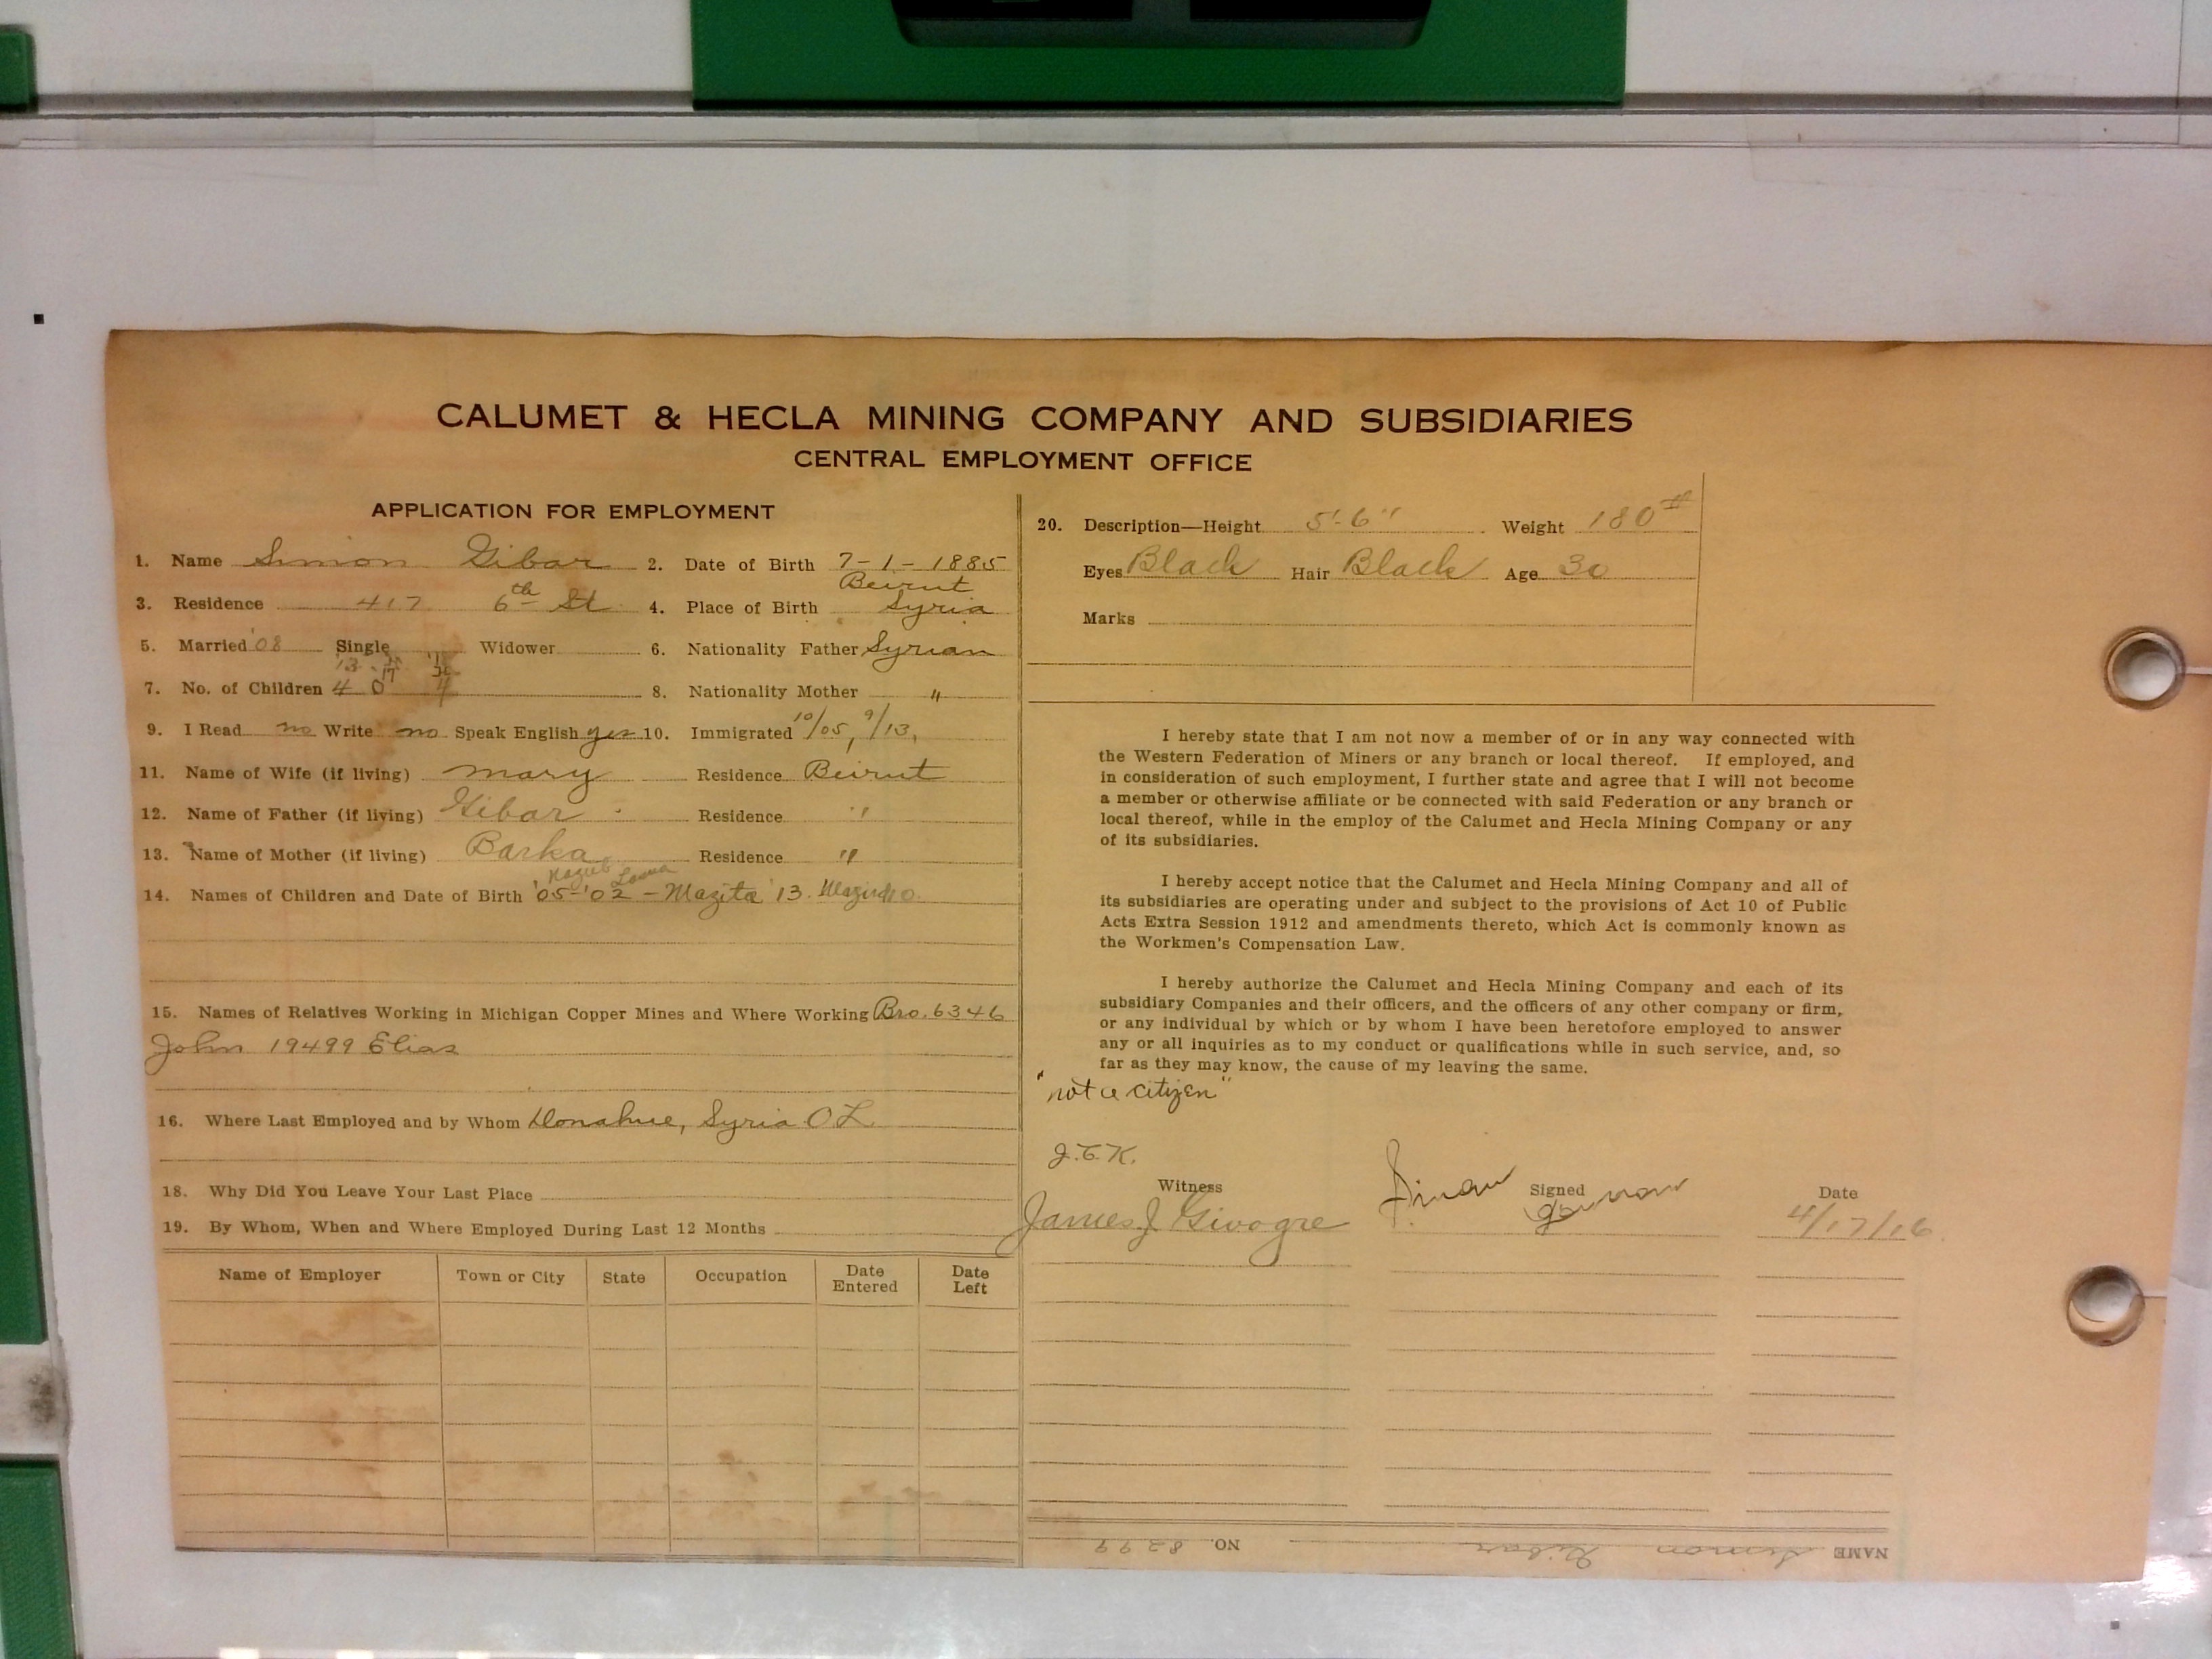 CALUMET & HECLA MINING COMPANY AND SUBSIDIARIES
CENTRAL EMPLOYMENT OFFICE
APPLICATION FOR EMPLOYMENT
1. Name Simon Gibar 2. Date of Birth 7-1-1885
3. Residence 417 6th St 4. Place of Birth Beirut Syria
5. Married '08 Single Widower 6. Nationality Father Syrian
7. No. of Children 4 0 4 8. Nationality Mother "
9. I Read no Write no Speak English yes 10. Immigrated 10/05, 9/13,
11. Name of Wife (if living) Mary Residence Beirut
12. Name of Father (if living) Gibar Residence "
13. Name of Mother (if living) Barka Residence "
14. Names of Children and Date of Birth '05-'02 - Mazita '13.
15. Names of Relatives Working in Michigan Copper Mines and Where Working Bro. 6346
John 19499 Elias
16. Where Last Employed and by Whom Donahue, Syria O.L.
18. Why Did You Leave Your Last Place
19. By Whom, When and Where Employed During Last 12 Months
Name of Employer Town or City State Occupation Date Entered Date Left
20. Description—Height 5'-6" Weight 180#
Eyes Black Hair Black Age 30
Marks
I hereby state that I am not now a member of or in any way connected with
the Western Federation of Miners or any branch or local thereof. If employed, and
in consideration of such employment, I further state and agree that I will not become
a member or otherwise affiliate or be connected with said Federation or any branch or
local thereof, while in the employ of the Calumet and Hecla Mining Company or any
of its subsidiaries.
I hereby accept notice that the Calumet and Hecla Mining Company and all of
its subsidiaries are operating under and subject to the provisions of Act 10 of Public
Acts Extra Session 1912 and amendments thereto, which Act is commonly known as
the Workmen's Compensation Law.
I hereby authorize the Calumet and Hecla Mining Company and each of its
subsidiary Companies and their officers, and the officers of any other company or firm,
or any individual by which or by whom I have been heretofore employed to answer
any or all inquiries as to my conduct or qualifications while in such service, and, so
far as they may know, the cause of my leaving the same.
"not a citizen"
J.E.K.
Witness Signed Date
James J. 4/17/16
NAME Simon Gibar NO. 8299